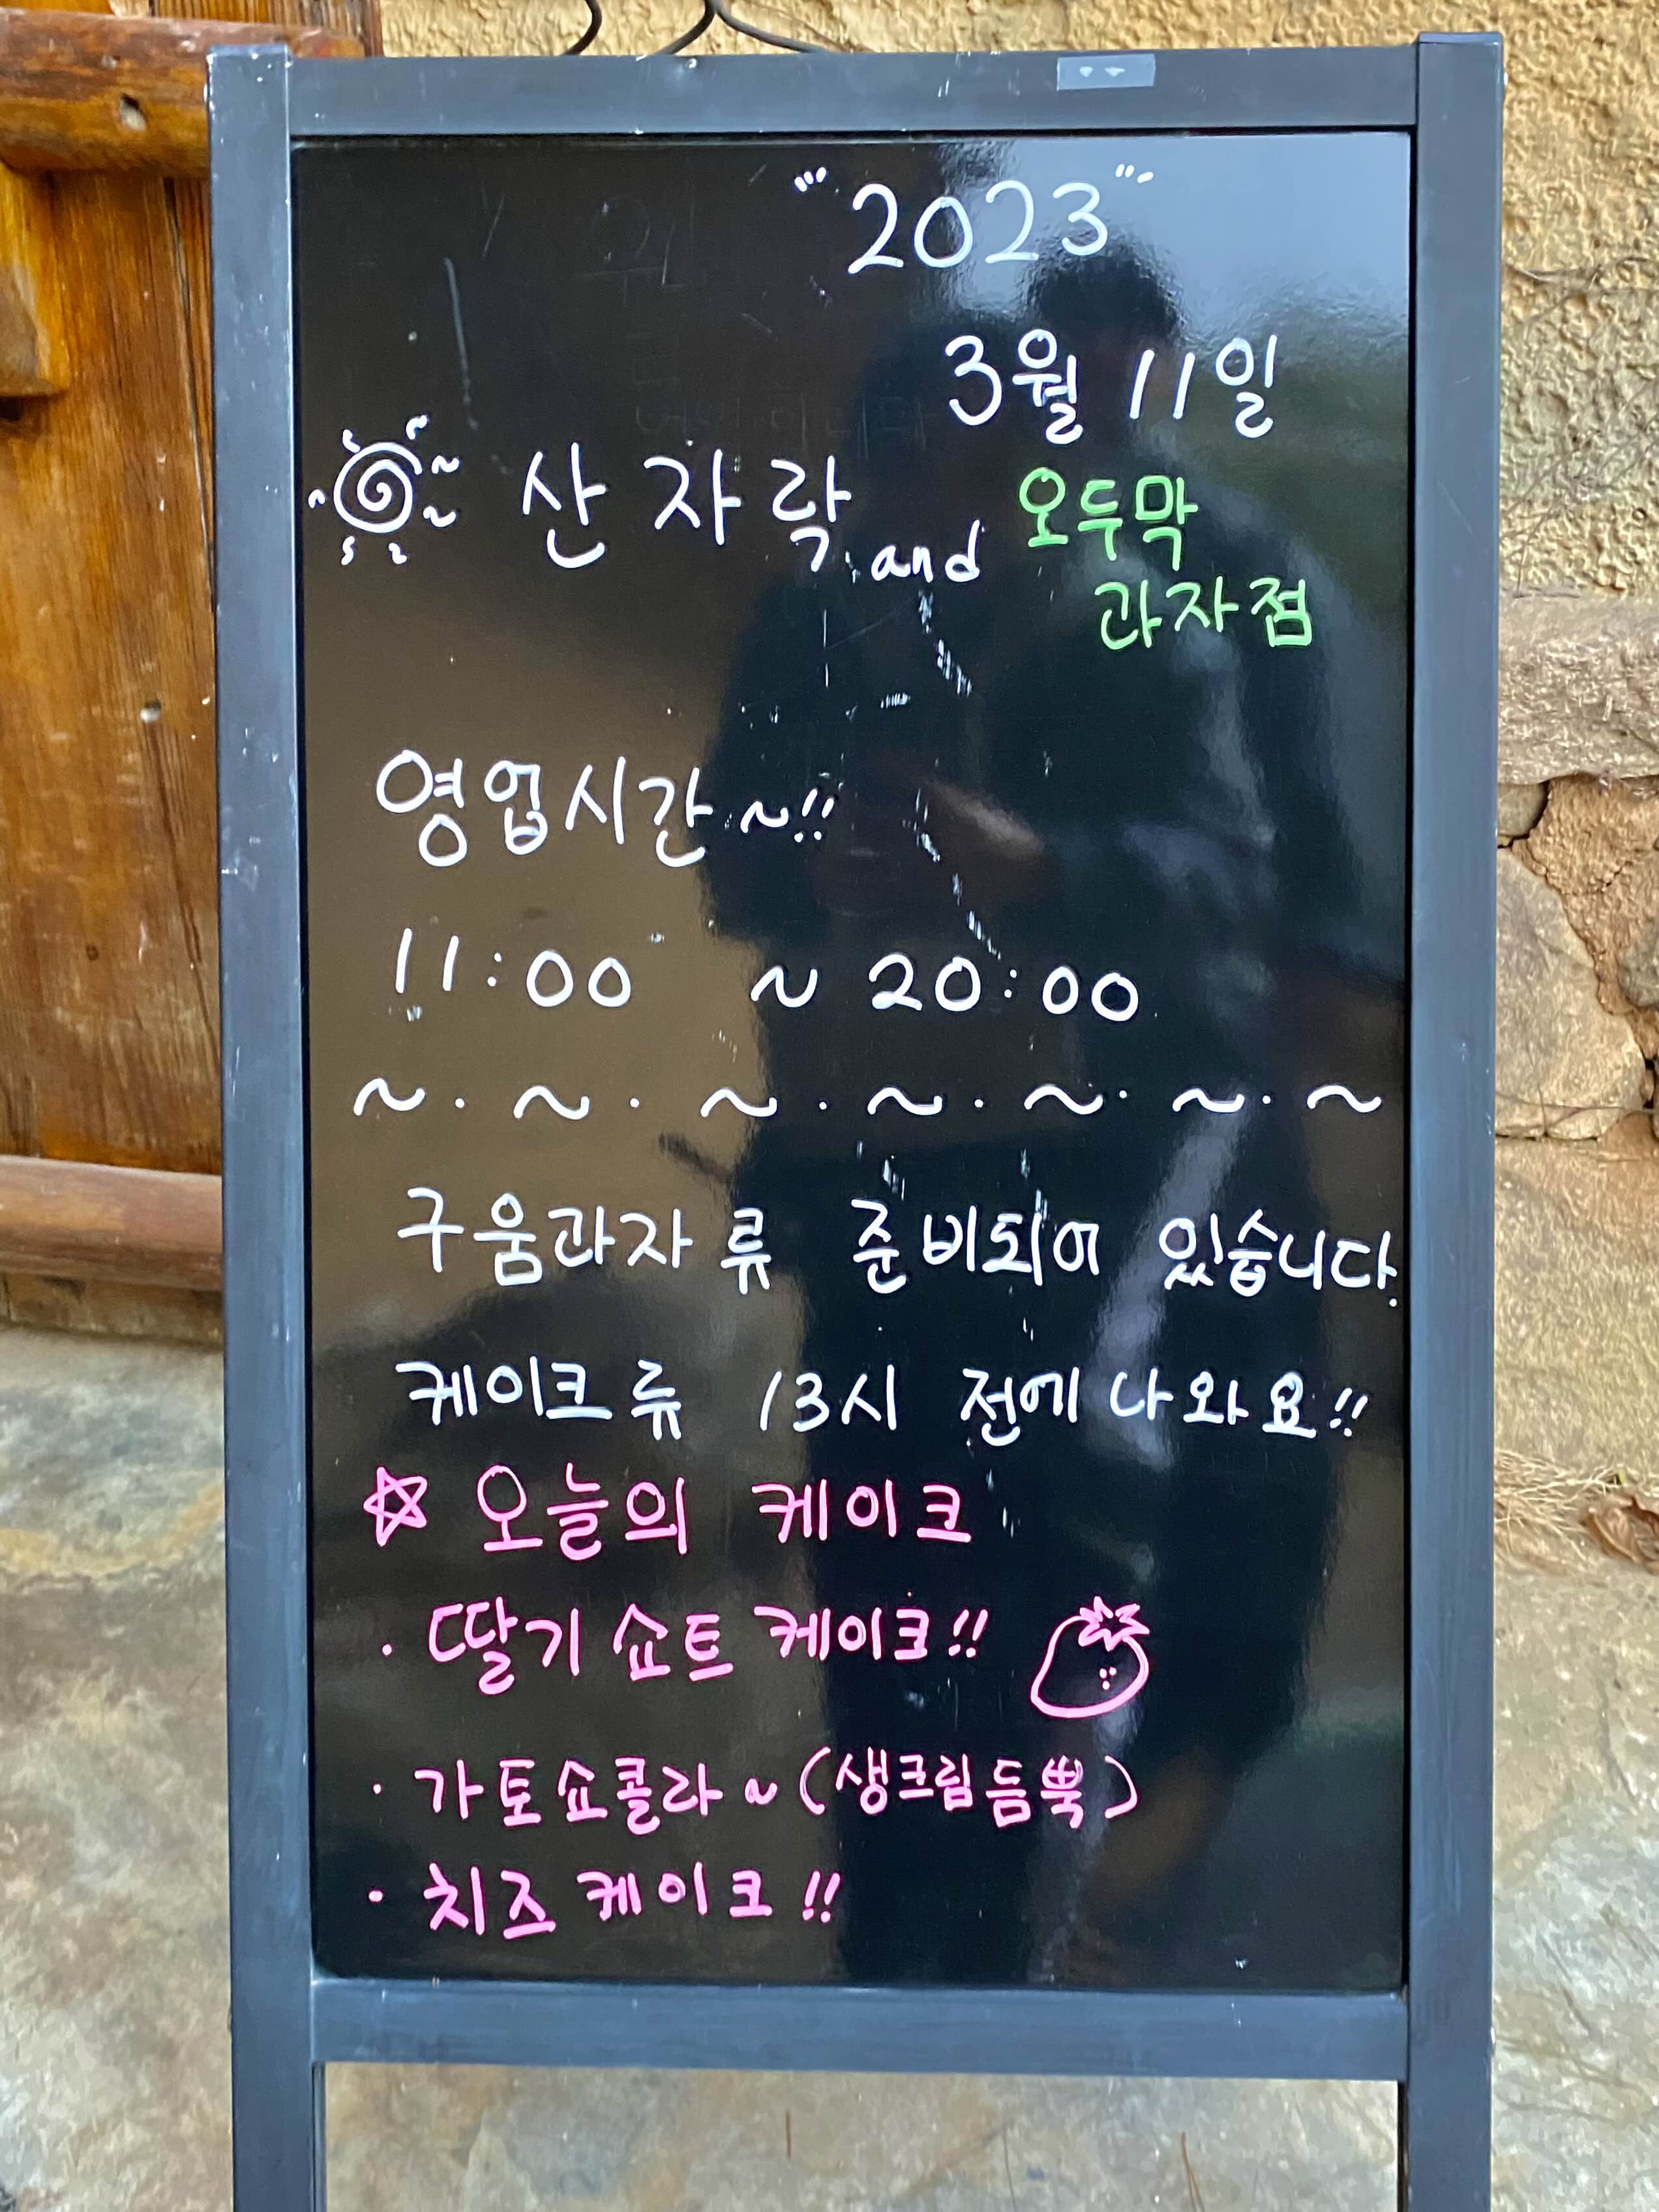 "2023"
3월 11일
산자락 and 오두막
과자점
영업시간~!!
11:00 ~ 20:00
~·~·~·~·~·~·~
구움과자류 준비되어 있습니다.
케이크류 13시 전에 나와요!!
☆ 오늘의 케이크
· 딸기 쇼트 케이크!!
· 가토쇼콜라~(생크림듬뿍)
· 치즈 케이크!!